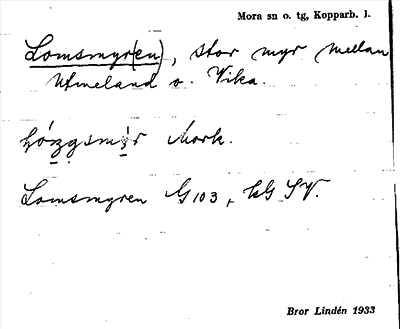 Mora sn o. tg, Kopparb. l.
Lomsmyr(en), stor myr mellan
Utmeland o. Vika.
Mork.
Lomsmyren G 103, kG SV.
Bror Lindén 1933